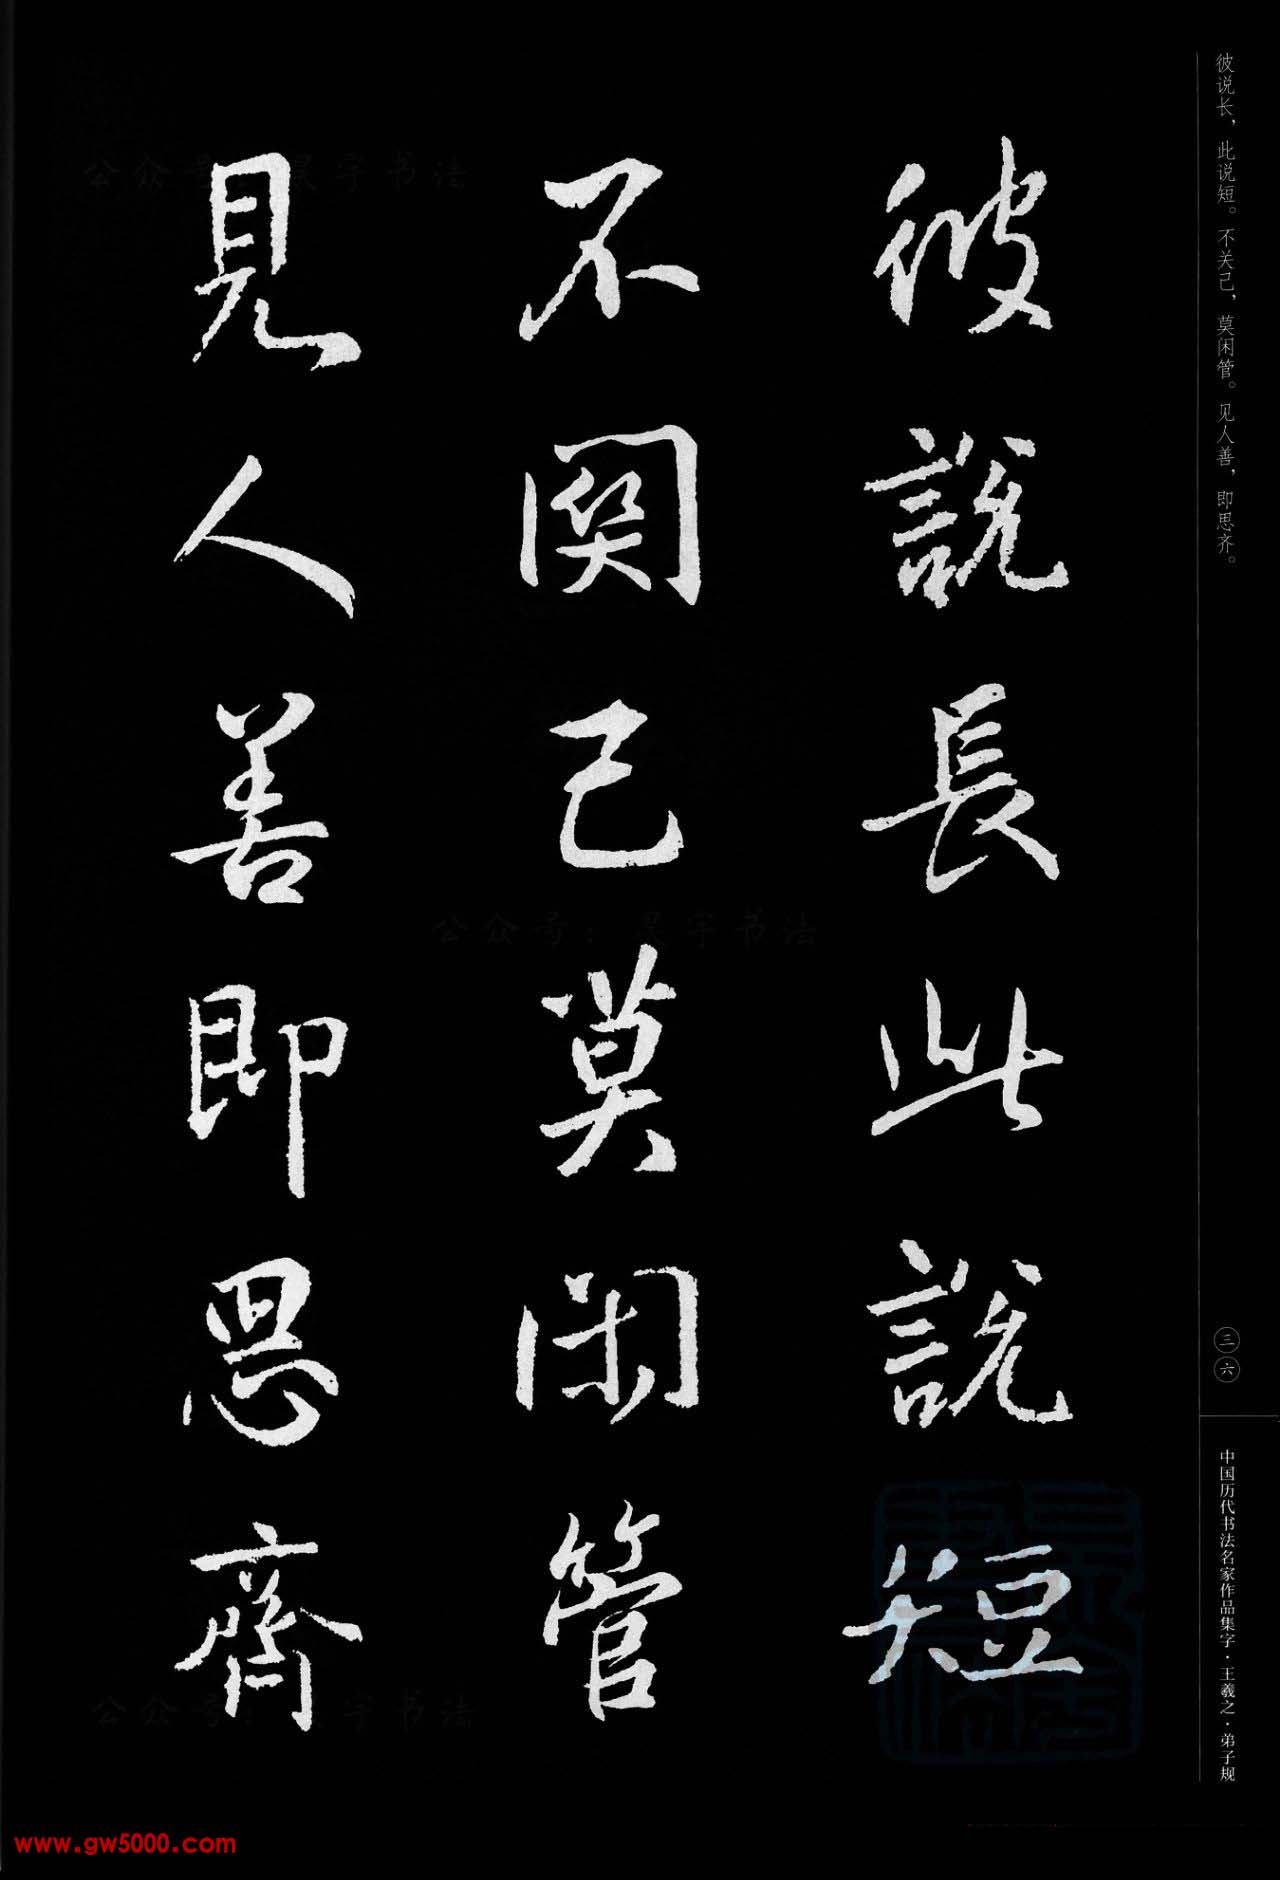 彼说长，此说短。不关己，莫闲管。见人善，即思齐。
彼說長此說短
不關己莫閑管
見人善即思齊
三六
中国历代书法名家作品集字·王羲之·弟子规
公众号：晨宇书法
公众号：晨宇书法
公众号：晨宇书法
www.gw5000.com